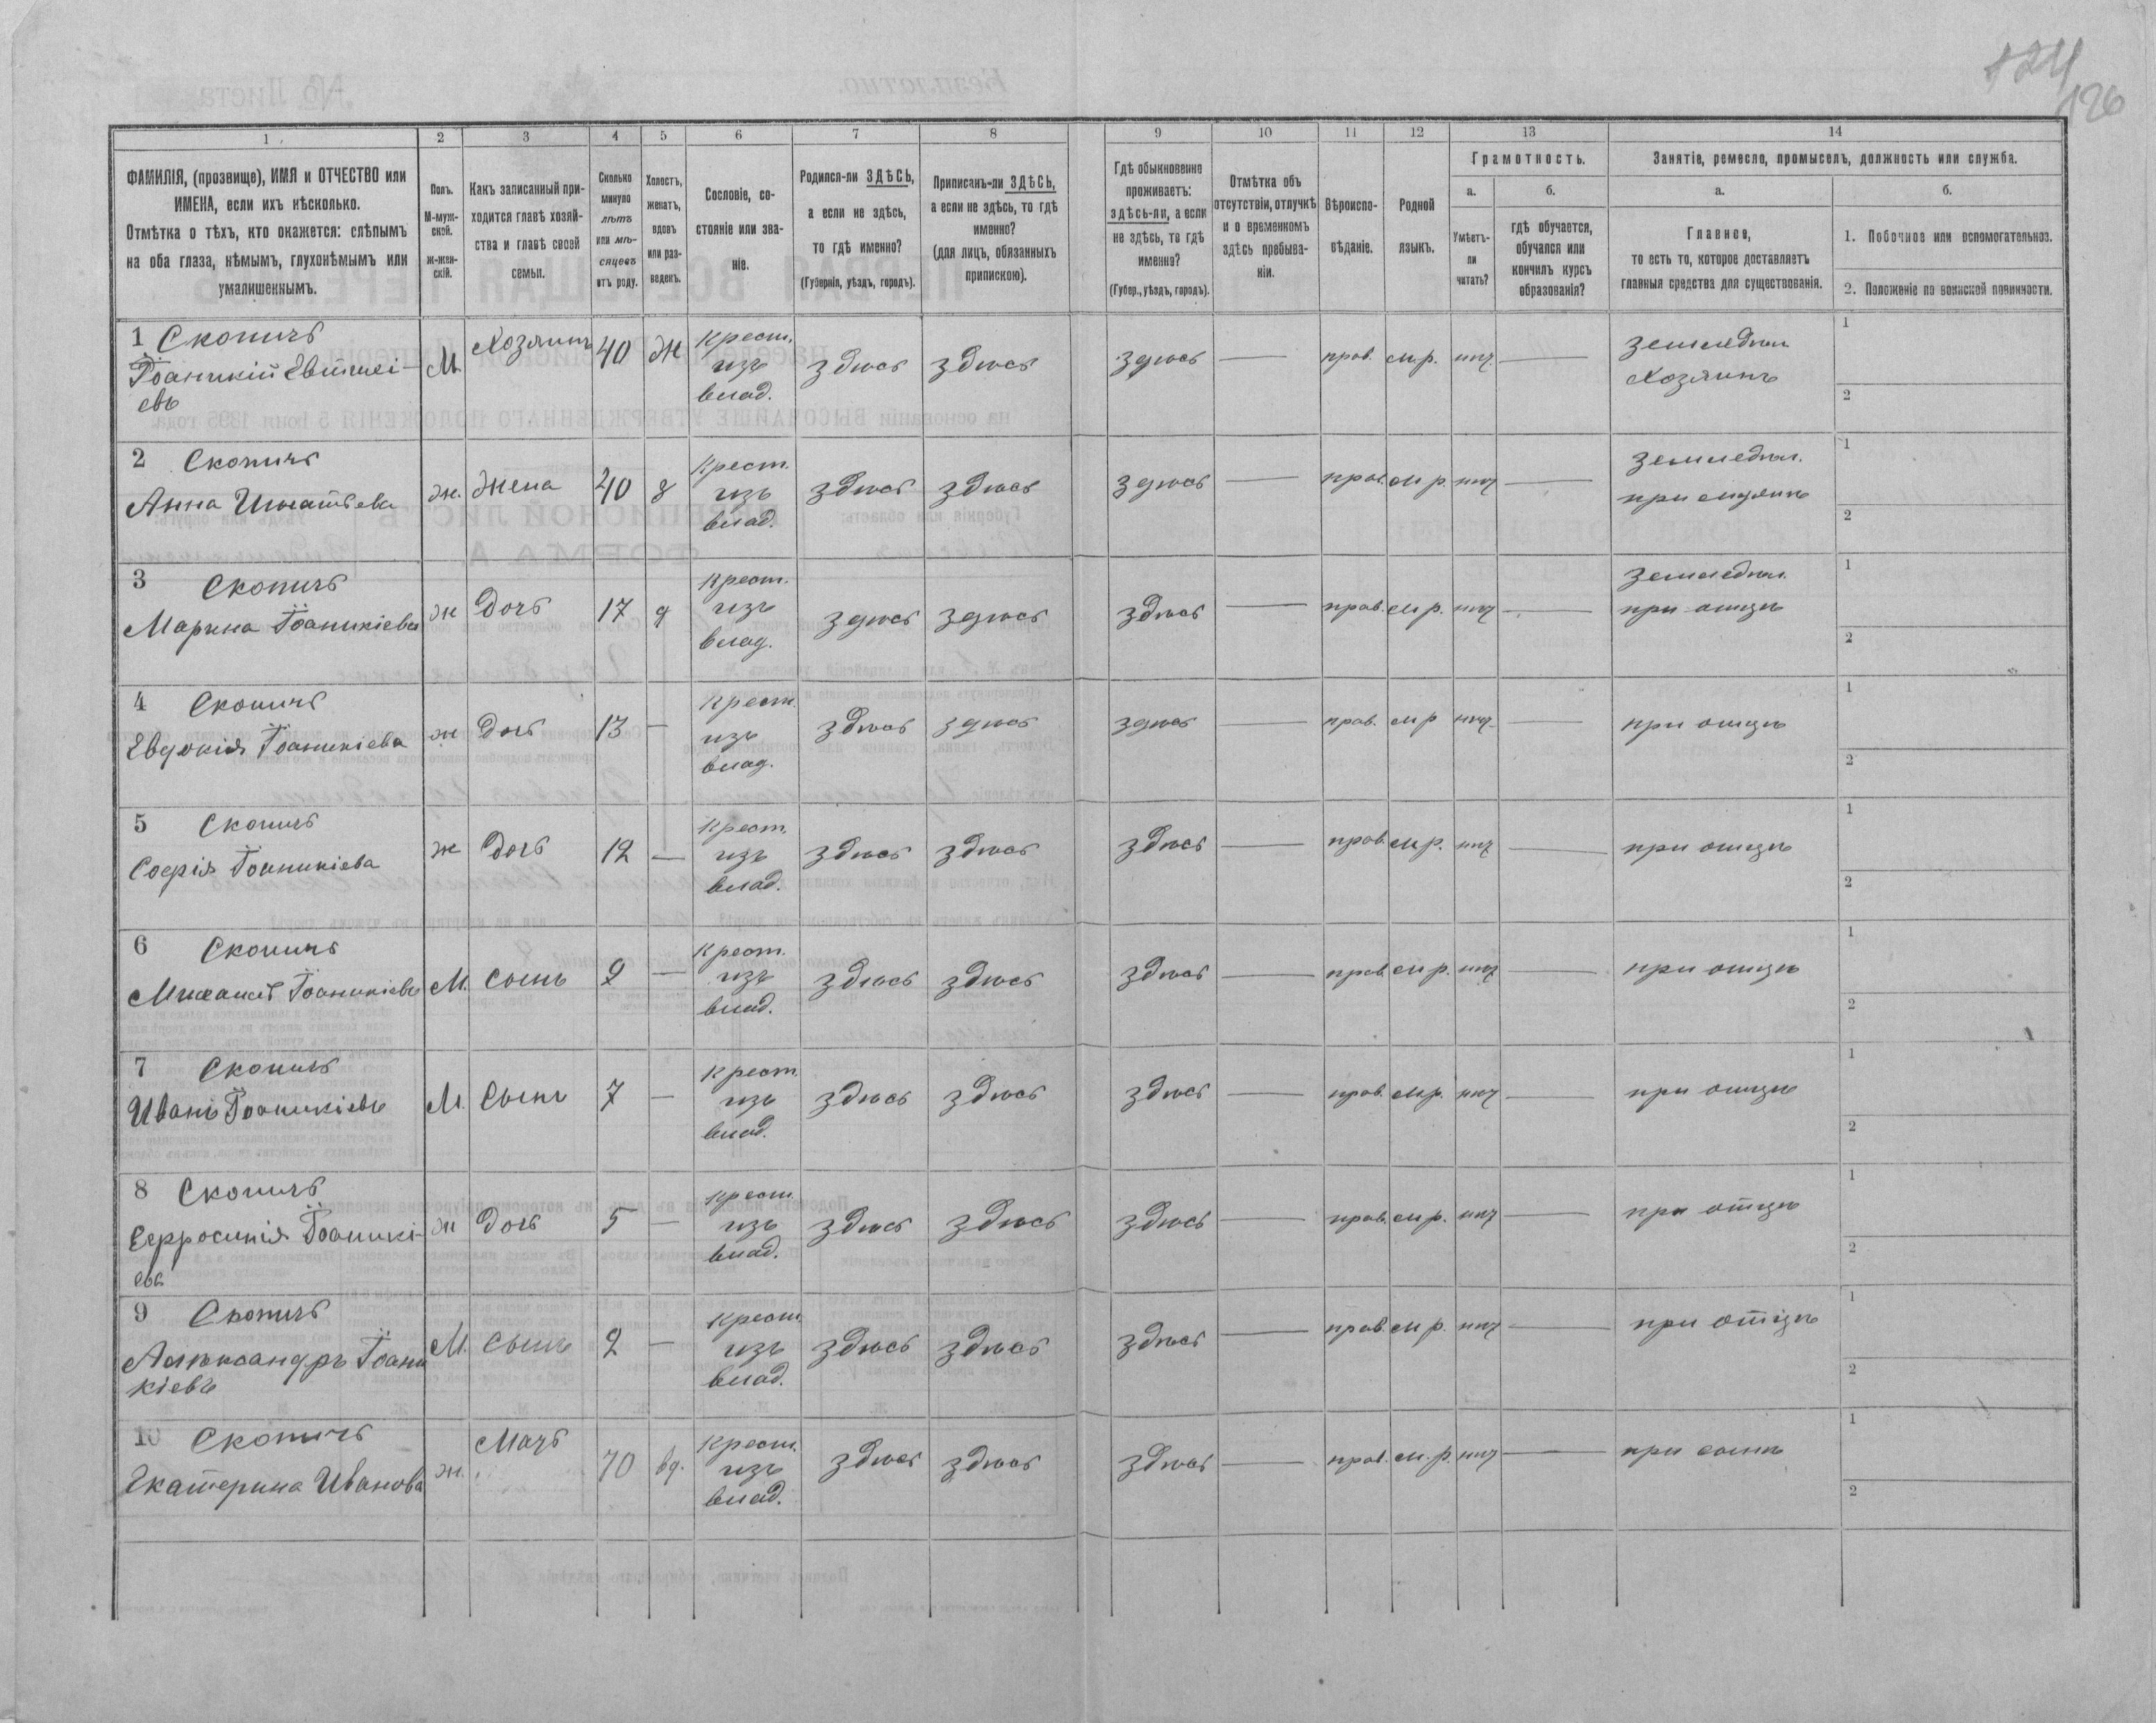 124
126
1 2 3 4 5 6 7 8 9 10 11 12 13 14
ФАМИЛІЯ, (прозвище), ИМЯ и ОТЧЕСТВО или
ИМЕНА, если ихъ нѣсколько.
Отмѣтка о тѣхъ, кто окажется: слѣпымъ
на оба глаза, нѣмымъ, глухонѣмымъ или
умалишеннымъ.
Полъ.
М-муж-
ской.
ж-жен-
скій.
Какъ записанный при-
ходится главѣ хозяй-
ства и главѣ своей
семьи.
Сколько
минуло
лѣтъ
или мѣ-
сяцевъ
отъ роду.
Холостъ,
женатъ,
вдовъ
или раз-
веденъ.
Сословіе, со-
стояніе или зва-
ніе.
Родился-ли ЗДѢСЬ,
а если не здѣсь,
то гдѣ именно?
(Губернія, уѣздъ, городъ).
Приписанъ-ли ЗДѢСЬ,
а если не здѣсь, то гдѣ
именно?
(для лицъ, обязанныхъ
припискою).
Гдѣ обыкновенно
проживаетъ:
здѣсь-ли, а если
не здѣсь, то гдѣ
именно?
(Губер., уѣздъ, городъ).
Отмѣтка объ
отсутствіи, отлучкѣ
и о временномъ
здѣсь пребыва-
ніи.
Вѣроиспо-
вѣданіе.
Родной
языкъ.
Грамотность.
а.
Умѣетъ-
ли
читать?
б.
гдѣ обучается,
обучался или
кончилъ курсъ
образованія?
Занятіе, ремесло, промыселъ, должность или служба.
а.
Главное,
то есть то, которое доставляетъ
главныя средства для существованія.
б.
1. Побочное или вспомогательное.
2. Положеніе по воинской повинности.
1 Скопичъ
Іоаникій Евтихі-
евъ
М Хозяинъ 40 Ж
Крест.
изъ
влад.
здѣсь здѣсь здѣсь — прав. м.р. нѣт —
земледѣл.
Хозяинъ
1
2
2 Скопичъ
Анна Игнатьева
ж. Жена 40 з
Крест.
изъ
влад.
здѣсь здѣсь здѣсь — прав. м р. нѣт —
земледѣл.
при мужѣ
1
2
3 Скопичъ
Марина Іоаникіева
ж Дочь 17 д
Крест.
изъ
влад.
здѣсь здѣсь здѣсь — прав. м р. нѣт —
земледѣл.
при отцѣ
1
2
4 Скопичъ
Евдокія Іоаникіева
ж Дочь 13 —
Крест.
изъ
влад.
здѣсь здѣсь здѣсь — прав. м р нѣт —
при отцѣ
1
2
5 Скопичъ
Софія Іоаникіева
ж Дочь 12 —
Крест.
изъ
влад.
здѣсь здѣсь здѣсь — прав. м р. нѣт —
при отцѣ
1
2
6 Скопичъ
Михаилъ Іоаникіевъ
М. Сынъ 9 —
Крест.
изъ
влад.
здѣсь здѣсь здѣсь — прав. м р. нѣт —
при отцѣ
1
2
7 Скопичъ
Иванъ Іоаникіевъ
М. Сынъ 7 —
Крест.
изъ
влад.
здѣсь здѣсь здѣсь — прав. м р. нѣт —
при отцѣ
1
2
8 Скопичъ
Ефросинія Іоаникі-
ева
ж Дочь 5 —
Крест.
изъ
влад.
здѣсь здѣсь здѣсь — прав. м р. нѣт —
при отцѣ
1
2
9 Скопичъ
Александръ Іоани
кіевъ
М. Сынъ 2 —
Крест.
изъ
влад.
здѣсь здѣсь здѣсь — прав. м р. нѣт —
при отцѣ
1
2
10 Скопичъ
Екатерина Иванова
ж. Мать 70 вд.
Крест.
изъ
влад.
здѣсь здѣсь здѣсь — прав. м. р. нѣт —
при сынѣ
1
2